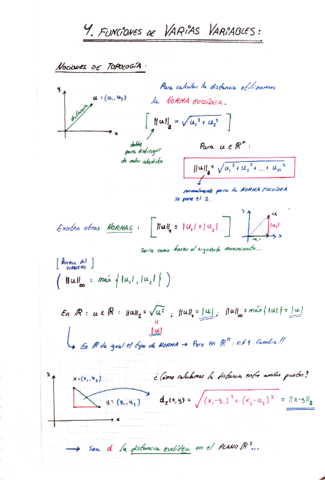 4. FUNCIONES DE VARIAS VARIABLES:
NOCIONES DE TOPOLOGÍA:
y
u = (u₁, u₂)
distancia
x
Para calcular la distancia utilizamos
la NORMA EUCLÍDEA.
[ ||u||₂ = √(u₁² + u₂²) ]
doble
para distinguir
de valor absoluto
Para u ∈ ℝⁿ:
||u||₂ = √(u₁² + u₂² + ... + uₙ²)
normalmente para la NORMA EUCLÍDEA
se pone el 2.
Existen otras NORMAS: [ ||u||₁ = |u₁| + |u₂| ]
y
u
|u₂|
|u₁|
x
Sería como hacer el siguiente movimiento...
[Norma del
( ||u||∞ = máx { |u₁|, |u₂| } )
En ℝ : u ∈ ℝ : ||u||₂ = √u² ; ||u||₁ = |u| ; ||u||∞ = máx{|u|} = |u|
|u|
↳ En ℝ da igual el tipo de NORMA → Pero en ℝⁿ : n≠1 Cambia!!
y
x = (x₁, x₂)
y = (y₁, y₂)
x
¿Cómo calculamos la distancia entre ambos puntos?
d₂(x,y) = √((x₁-y₁)² + (x₂-y₂)²) = ||x-y||₂
→ Sea d la distancia euclídea en el PLANO ℝ²...